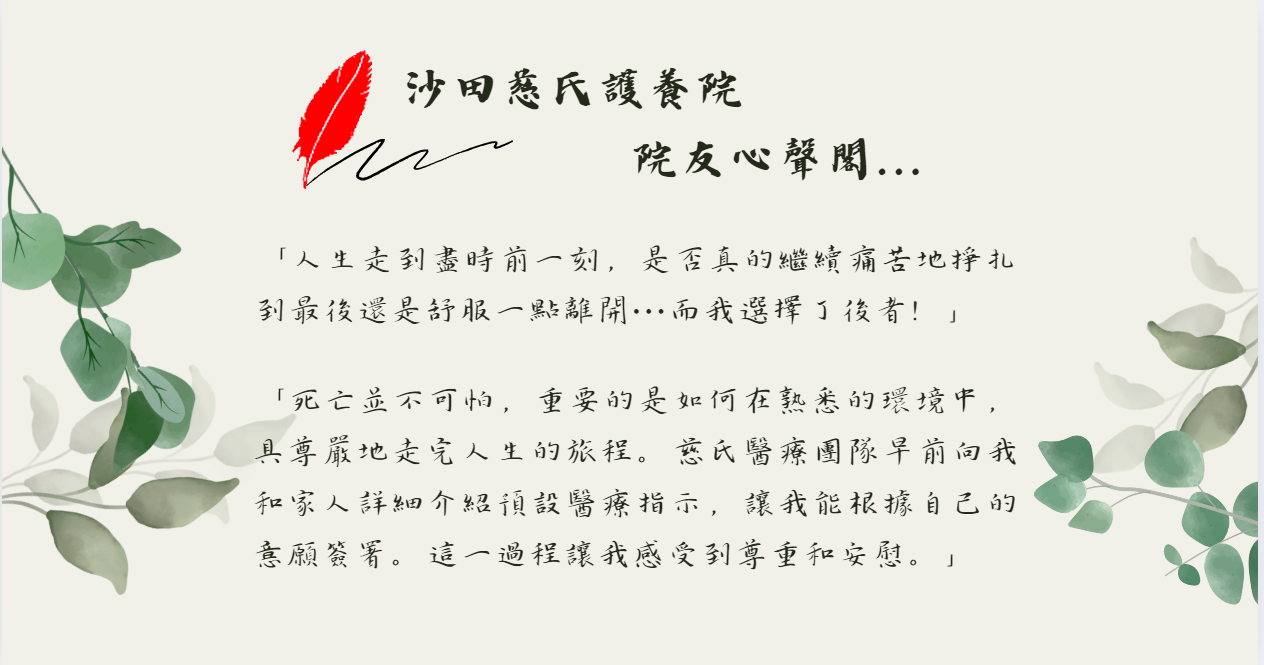 沙田慈氏護養院
院友心聲閣...
「人生走到盡時前一刻，是否真的繼續痛苦地掙扎
到最後還是舒服一點離開…而我選擇了後者！」
「死亡並不可怕，重要的是如何在熟悉的環境中，
具尊嚴地走完人生的旅程。慈氏醫療團隊早前向我
和家人詳細介紹預設醫療指示，讓我能根據自己的
意願簽署。這一過程讓我感受到尊重和安慰。」